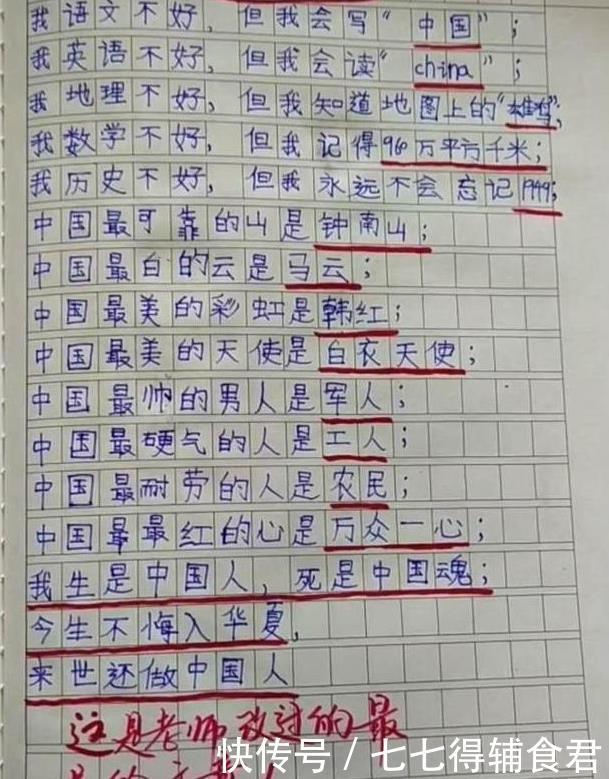 我语文不好，但我会写“中国”；
我英语不好，但我会读“china”；
我地理不好，但我知道地图上的“雄鸡”；
我数学不好，但我记得960万平方千米；
我历史不好，但我永远不会忘记1949；
中国最可靠的山是钟南山；
中国最白的云是马云；
中国最美的彩虹是韩红；
中国最美的天使是白衣天使；
中国最帅的男人是军人；
中国最硬气的人是工人；
中国最耐劳的人是农民；
中国最最红的心是万众一心；
我生是中国人，死是中国魂；
今生不悔入华夏，
来世还做中国人
这是老师改过的最
快传号／七七得辅食君